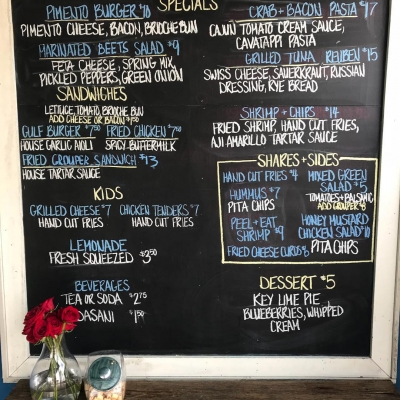 SPECIALS
PIMENTO BURGER $10
PIMENTO CHEESE, BACON, BRIOCHE BUN
MARINATED BEETS SALAD $9
FETA CHEESE, SPRING MIX,
PICKLED PEPPERS, GREEN ONION
SANDWICHES
LETTUCE, TOMATO, BRIOCHE BUN
ADD CHEESE OR BACON
GULF BURGER $7.50 FRIED CHICKEN
HOUSE GARLIC AIOLI SPICY BUTTERMILK
FRIED GROUPER SANDWICH $13
HOUSE TARTAR SAUCE
KIDS
GRILLED CHEESE $7 CHICKEN TENDERS $7
HAND CUT FRIES HAND CUT FRIES
LEMONADE
FRESH SQUEEZED $3.50
BEVERAGES
TEA OR SODA $2.75
DASANI $1.50
CRAB + BACON PASTA $17
CAJUN TOMATO CREAM SAUCE,
CAVATAPPI PASTA
GRILLED TUNA REUBEN $15
SWISS CHEESE, SAUERKRAUT, RUSSIAN
DRESSING, RYE BREAD
SHRIMP + CHIPS $14
FRIED SHRIMP, HAND CUT FRIES,
AJI AMARILLO TARTAR SAUCE
SHAKES + SIDES
HAND CUT FRIES $4
HUMMUS $7
PITA CHIPS
PEEL + EAT
SHRIMP $9
FRIED CHEESE CURDS $8
MIXED GREEN
SALAD $5
TOMATOES + BALSAMIC
ADD GROUPER
HONEY MUSTARD
CHICKEN SALAD $10
PITA CHIPS
DESSERT $5
KEY LIME PIE
BLUEBERRIES, WHIPPED
CREAM